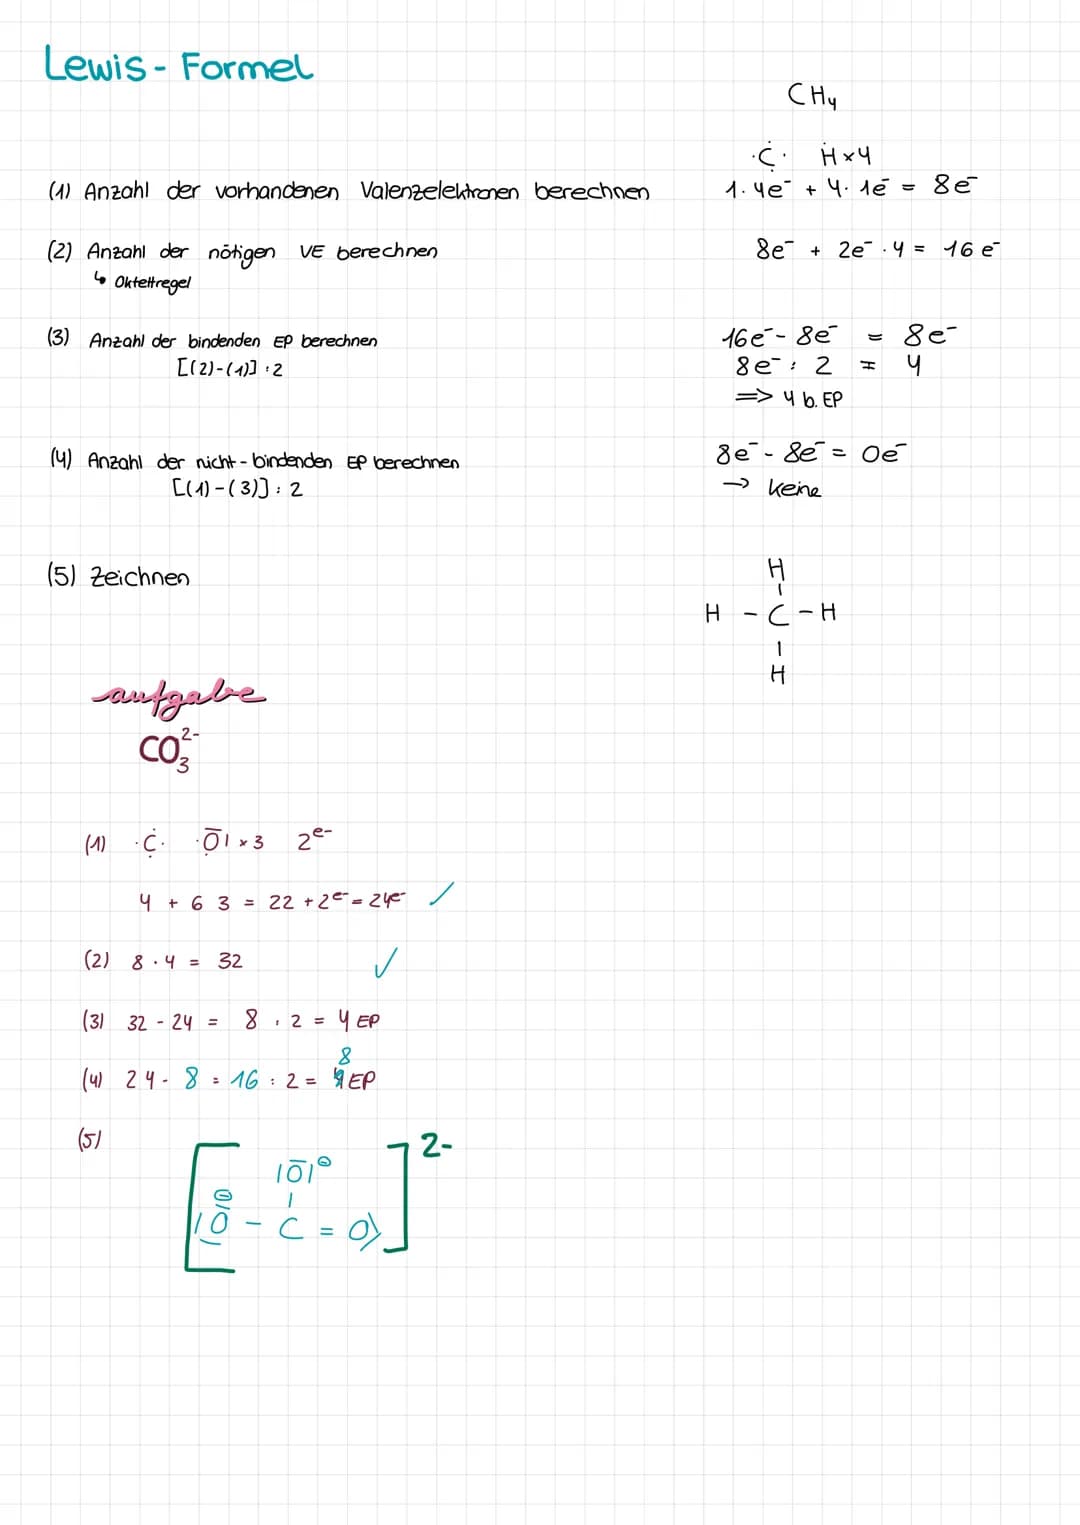 Lewis - Formel
CH₄
·Ċ· Ḣ × 4
(1) Anzahl der vorhandenen Valenzelektronen berechnen
1 · 4e⁻ + 4 · 1e⁻ = 8e⁻
(2) Anzahl der nötigen VE berechnen
↳ Oktettregel
8e⁻ + 2e⁻ · 4 = 16 e⁻
(3) Anzahl der bindenden EP berechnen
[(2)-(1)] : 2
16e⁻ - 8e⁻ = 8e⁻
8e⁻ : 2 = 4
=> 4 b. EP
(4) Anzahl der nicht-bindenden EP berechnen
[(1)-(3)] : 2
8e⁻ - 8e⁻ = 0e⁻
→ keine
(5) Zeichnen
H
|
H - C - H
|
H
aufgabe
CO₃²⁻
(1) ·Ċ· ·O̅| × 3 2e⁻
4 + 6 3 = 22 + 2e⁻ = 24e⁻ ✓
(2) 8 · 4 = 32 ✓
(3) 32 - 24 = 8 : 2 = 4 EP
8
(4) 24 - 8 = 16 : 2 = EP
(5)
2-
|O̅|⊖
|
⊖
|O̅ - C = O⟩